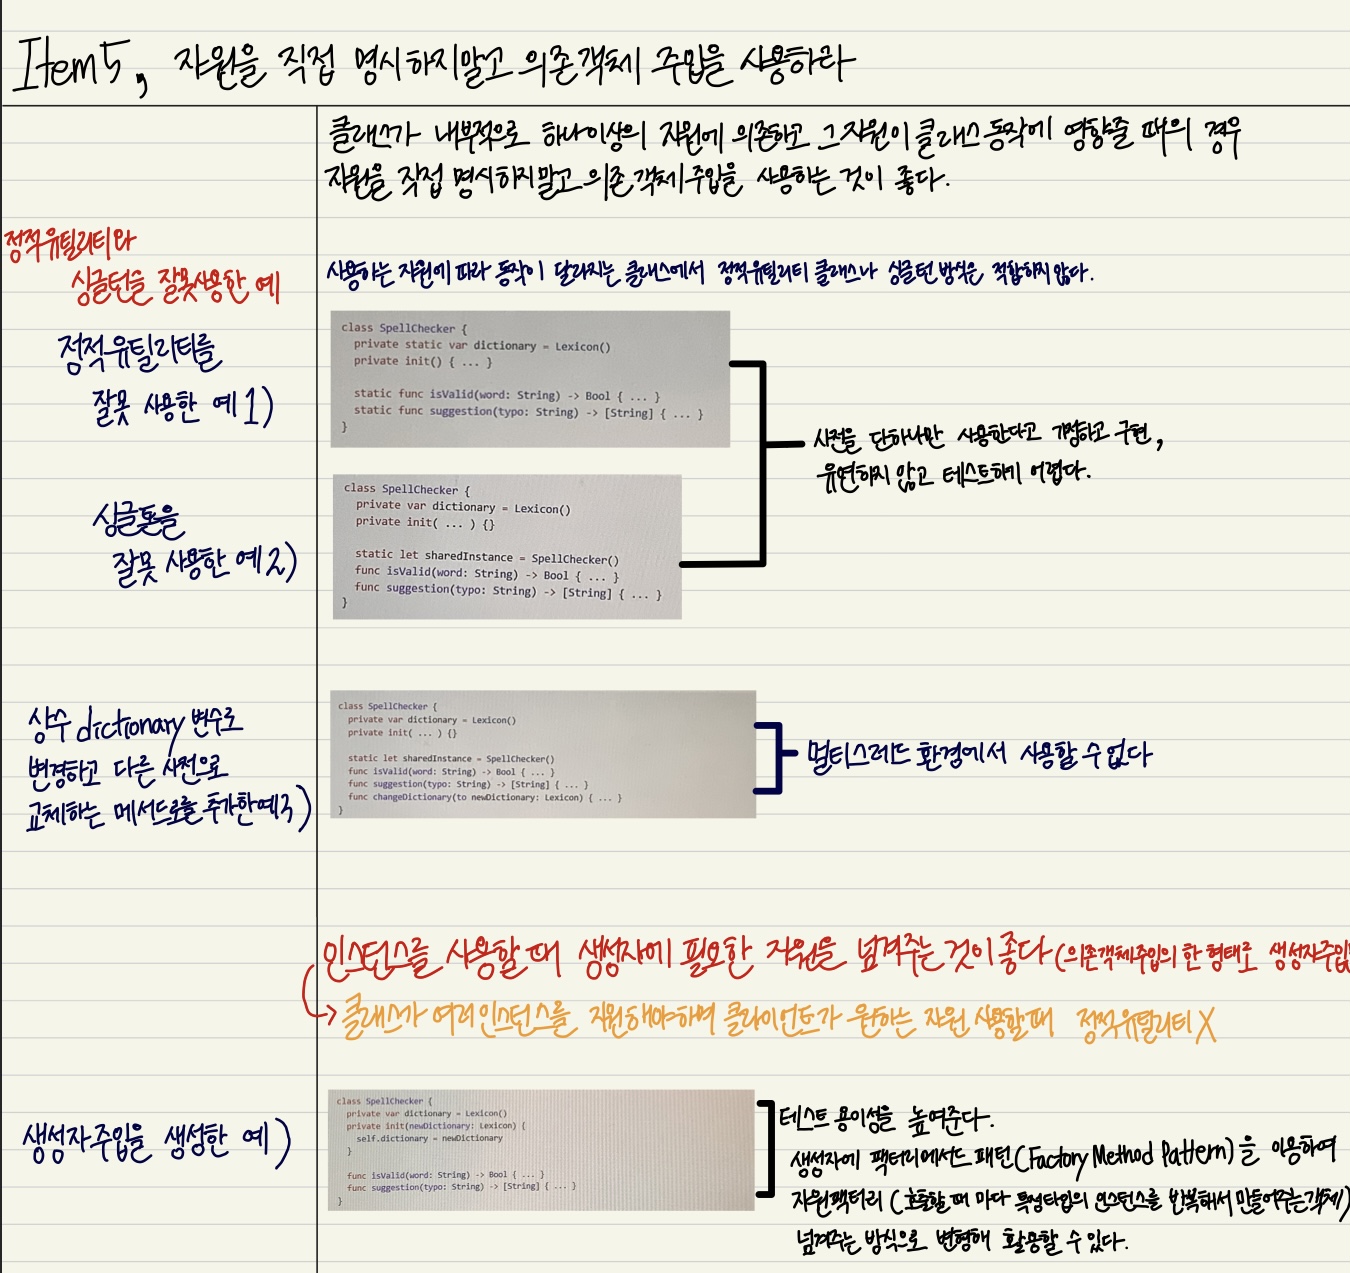 Item5, 자원을 직접 명시하지말고 의존객체 주입을 사용하라
클래스가 내부적으로 하나이상의 자원에 의존하고 그 자원이 클래스 동작에 영향줄 때의 경우
자원을 직접 명시하지말고 의존 객체주입을 사용하는 것이 좋다.
정적유틸리티와
싱글턴을 잘못사용한 예
사용하는 자원에 따라 동작이 달라지는 클래스에서 정적유틸리티 클래스나 싱글턴 방식은 적합하지 않다.
정적유틸리티를
잘못 사용한 예 1)
class SpellChecker {
private static var dictionary = Lexicon()
private init() { ... }
static func isValid(word: String) -> Bool { ... }
static func suggestion(typo: String) -> [String] { ... }
}
사전을 단하나만 사용한다고 가정하고 구현,
유연하지 않고 테스트하기 어렵다.
싱글톤을
잘못 사용한 예2)
class SpellChecker {
private var dictionary = Lexicon()
private init( ... ) {}
static let sharedInstance = SpellChecker()
func isValid(word: String) -> Bool { ... }
func suggestion(typo: String) -> [String] { ... }
}
상수 dictionary 변수로
변경하고 다른 사전으로
교체하는 메서드를 추가한예3)
class SpellChecker {
private var dictionary = Lexicon()
private init( ... ) {}
static let sharedInstance = SpellChecker()
func isValid(word: String) -> Bool { ... }
func suggestion(typo: String) -> [String] { ... }
func changeDictionary(to newDictionary: Lexicon) { ... }
}
멀티스레드 환경에서 사용할 수 없다
인스턴스를 사용할 때 생성자에 필요한 자원을 넘겨주는 것이 좋다 (의존객체주입의 한 형태로 생성자주입
클래스가 여러 인스턴스를 지원해야하며 클라이언트가 원하는 자원 사용할때 정적유틸리티 X
생성자주입을 생성한 예)
class SpellChecker {
private var dictionary = Lexicon()
private init(newDictionary: Lexicon) {
self.dictionary = newDictionary
}
func isValid(word: String) -> Bool { ... }
func suggestion(typo: String) -> [String] { ... }
}
테스트 용이성을 높여준다.
생성자에 팩터리메서드 패턴(Factory Method Pattern)을 이용하여
자원팩터리 (호출할 때 마다 특정타입의 인스턴스를 반복해서 만들어주는객체)
넘겨주는 방식으로 변형해 활용할 수 있다.